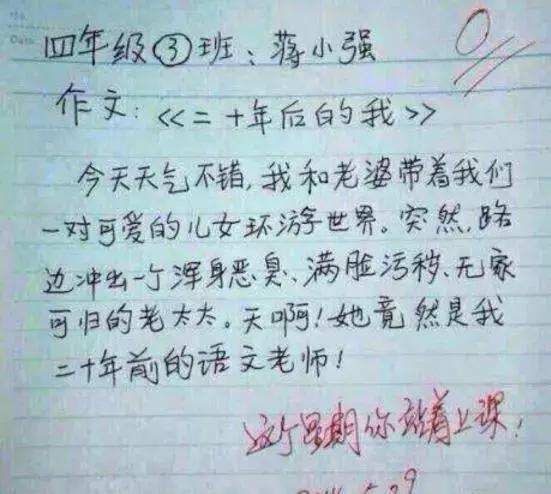 No:
Date
四年级③班：蒋小强
0
作文：<<二十年后的我>>
今天天气不错，我和老婆带着我们
一对可爱的儿女环游世界。突然，路
边冲出一个浑身恶臭、满脸污秽、无家
可归的老太太。天啊！她竟然是我
二十年前的语文老师！
这个星期你站着上课！